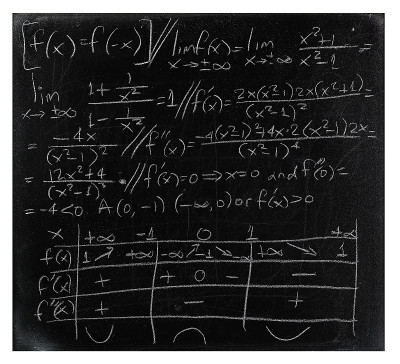 [f(x)=f(-x)] // lim f(x) = lim x²+1/x²-1 =
x→±∞ x→±∞
lim 1+1/x² / 1-1/x² = 1 // f'(x) = 2x(x²-1)2x(x²+1)/(x²-1)² =
x→±∞
= -4x/(x²-1)² // f''(x) = -4(x²-1)²+4x·2(x²-1)2x/(x²-1)⁴ =
= 12x²+4/(x²-1)³ · // f'(x)=0 ⇒ x=0 and f''(0)=
= -4<0 A(0,-1) (-∞,0) or f'(x)>0
x +∞ -1 0 1 +∞
f(x) 1 ↗ +∞ -∞ ↗ -1 ↘ -∞ +∞ ↘ 1
f'(x) + + 0 - -
f''(x) + - +